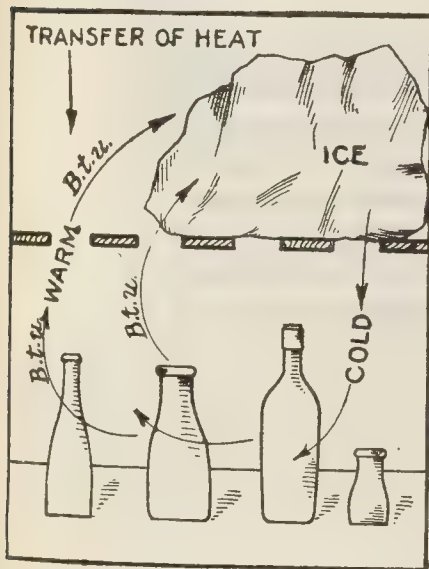 TRANSFER OF HEAT
B.t.u.
ICE
WARM
B.t.u.
B.t.u.
COLD